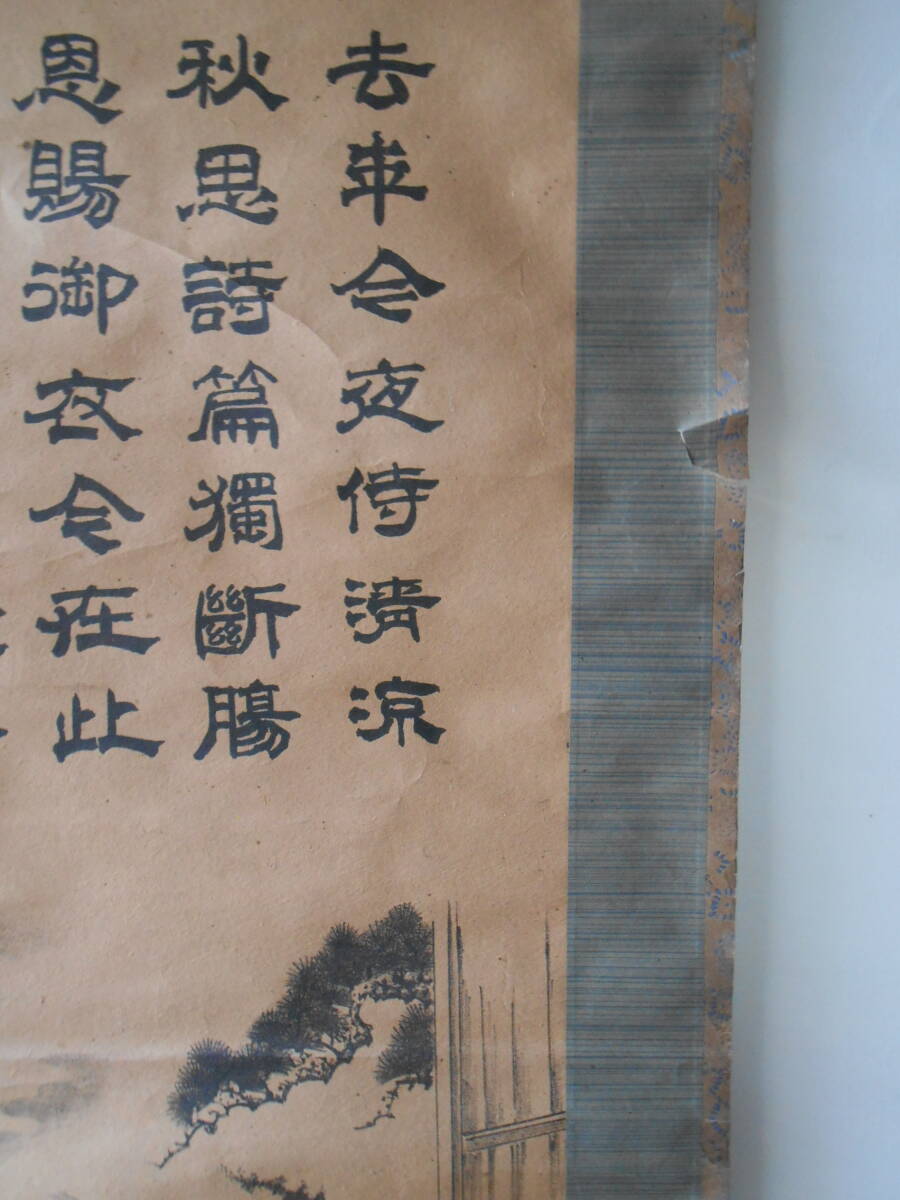 去年今夜侍清涼
秋思詩篇獨斷腸
恩賜御衣今在此